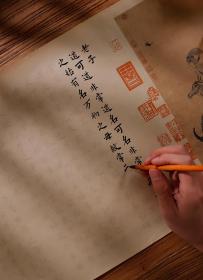 老子
道可道非常道名可名非常
之始有名万物之母故常